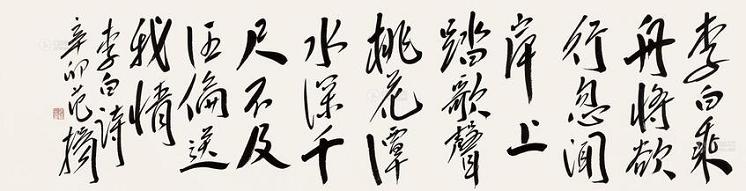 李白乘
舟將欲
行忽聞
岸上
踏歌聲
桃花潭
水深千
尺不及
汪倫送
我情
李白詩
辛卯范